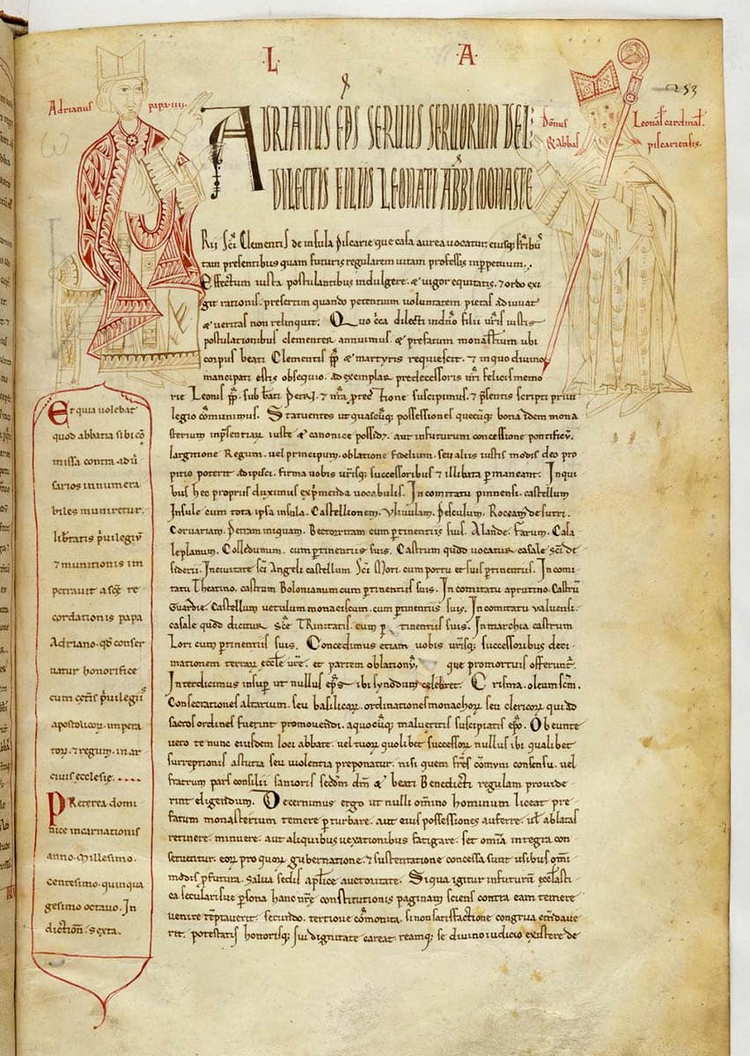 ·L· ·A·
253
Adrianus papa·iiii·
Dōnus Leonaſ cardinaľ
& abbas piſcarienſis.
ADRIANUS EPS SERUUS SERUORUM DEI·
DILECTIS FILIIS LEONATI ABBI MONASTE
Rii Sci Clementis de inſula piſcarie que caſa aurea vocatur· eiuſq; fribuſ
tam preſentibus quam futuris regularem uitam profeſſis inppetuum·
Effectum iuſta poſtulantibus indulgere· & uigor equitatis· & ordo exi
git rationis· preſertim quando petentium uoluntatem pietas adiuuat
& ueritas non relinquit· Quo circa dilecti in dno filii uris iuſtis
poſtulationibus clementer annuimus· & prefatum monaſtium ubi
corpus beati Clementis pp & martyris requieſcit· & in quo diuino
mancipati eſtis obſequio· ad exemplar predeceſſoris nri felicis memo
rie Leonis pp· ſub bati Petri· & nra ptectione ſuſcipimus· & pſentis ſcripti priui
legio cōmunimus· Statuentes ut quaſcūq; poſſeſſiones quecūq; bona idem mona
ſterium inpſentiarū iuſte & canonice poſſidet· aut infuturum conceſſione pontificū·
largitione Regum· uel principum· oblatione fidelium· ſeu aliis iuſtis modis deo pro
pitio poterit adipiſci· firma uobis uriſq; ſucceſſoribus & illibata pmaneant· In qui
bus hec propriis duximus exprimenda uocabulis· In comitatu pinnenſi· caſtellum
Inſule cum tota ipſa inſula· Caſtellionem· Peſculum· Roccam de ſutri·
Coruariam· Petram iniquam· cum ptinentiis ſuis· Alande· Farum· Caſa
leplanum· Colledunum· cum ptinentiis ſuis· Caſtrum quod uocatur caſale ſci de
ſiderii· In ciuitate ſci Angeli caſtellum Sci Mori· cum portu et ſuis ptinentiis· In comi
tatu Theatino· caſtrum Bolonianum cum ptinentiis ſuis· In comitatu aprutino· Caſtrū
Guardie· Caſtellum uetulum monaciſcum· cum ptinentiis ſuis· In comitatu ualuenſi·
caſale quod dicitur Sce Trinitatis· cum ptinentiis ſuis· In marchia caſtrum
Lori cum ptinentiis ſuis· Concedimus etiam uobis uriſq; ſucceſſoribus deci
mationem terrarū eccle ure· et partem oblationū que pro mortuis offerunt·
Interdicimus inſup ut nullus epſ ibi ſynodum celebret· Criſma· oleum ſcm·
Conſecrationes altarium· ſeu baſilicarū· ordinationes monachorū ſeu clericorū qui ad
ſacros ordines fuerint promouendi· a quocūq; malueritis ſuſcipiatis epo· Obeunte
uero te nunc eiuſdem loci abbate· uel tuorū quolibet ſucceſſorū nullus ibi qualibet
ſurreptionis aſtutia ſeu uiolentia preponatur· niſi quem fres cōmuni conſenſu· uel
fratrum pars conſilii ſanioris ſecdm dm & beati Benedicti regulam prouide
rint eligendum· Decernimus ergo ut nulli omīno hominum liceat pre
fatum monaſterium temere pturbare· aut eius poſſeſſiones auferre· uł ablatas
retinere· minuere· aut aliquibus uexationibus fatigare· ſet omīa integra con
ſeruentur· eorū pro quorū gubernatione· & ſuſtentatione conceſſa ſunt uſibus omī
modis pfutura· ſalua ſedis aplice auctoritate· Siqua igitur infuturū eccleſiaſti
ca ſecularisue pſona hanc nre conſtitutionis paginam ſciens contra eam temere
uenire tēptauerit· ſecundo· tertioue cōmonita· ſi non ſatiſfactione congrua emdaue
rit· poteſtatis honoriſq; ſui dignitate careat reamq; ſe diuino iudicio exiſtere de
Et quia uolebat
quod abbatia ſibi cō
miſſa contra adū
ſarios innumera
biles muniretur·
libtatis priuilegiū
& munitionis im
petrauit a ſcē re
cordationis papa
Adriano· qđ conſer
uatur honorifice
cum cetis priuilegiis
apoſtolicorū· impera
torū· & regum· in ar
ciuis eccleſie·....
Preterea domi
nice incarnationis
anno· Milleſimo·
centeſimo· quinqua
geſimo octauo· In
dictioñ· ſexta·